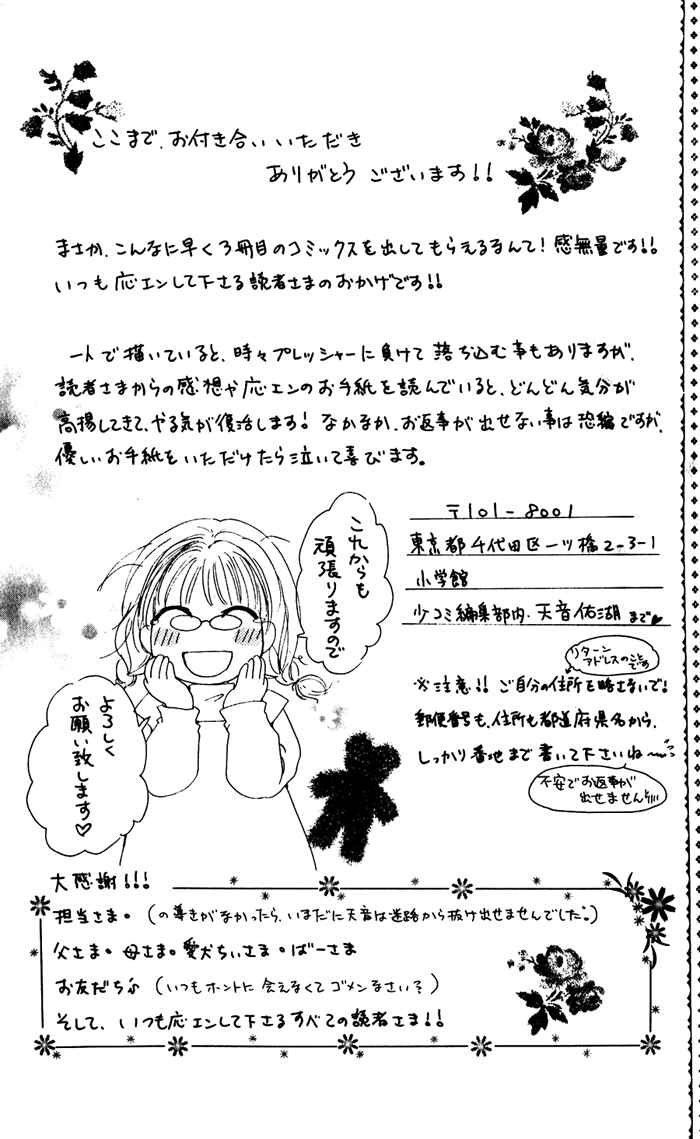 ここまで、お付き合いいただき
ありがとう ございます!!
まさか、こんなに早く3冊目のコミックスを出してもらえるなんて!感無量です!!
いつも応エンして下さる読者さまのおかげです!!
一人で描いていると、時々プレッシャーに負けて落ち込む事もありますが、
読者さまからの感想や応エンのお手紙を読んでいると、どんどん気分が
高揚してきて、やる気が復活します!なかなか、お返事が出せない事は恐縮ですが、
優しいお手紙をいただけたら泣いて喜びます。
これからも
頑張りますので
よろしく
お願い致します♡
〒101-8001
東京都千代田区一ツ橋2-3-1
小学館
少コミ編集部内・天音佑湖まで♥
リターン
アドレスのこと
です
※注意!!ご自分の住所を略さないで!
郵便番号も、住所も都道府県名から、
しっかり番地まで書いて下さいね〜
不安でお返事が
出せません
大感謝!!!
担当さま。(の導きがなかったら、いまだに天音は迷路から抜け出せませんでした。)
父さま。母さま。愛犬ちぃさま。ばーさま
お友だち♪(いつもホントに会えなくてゴメンなさい?)
そして、いつも応エンして下さるすべての読者さま!!